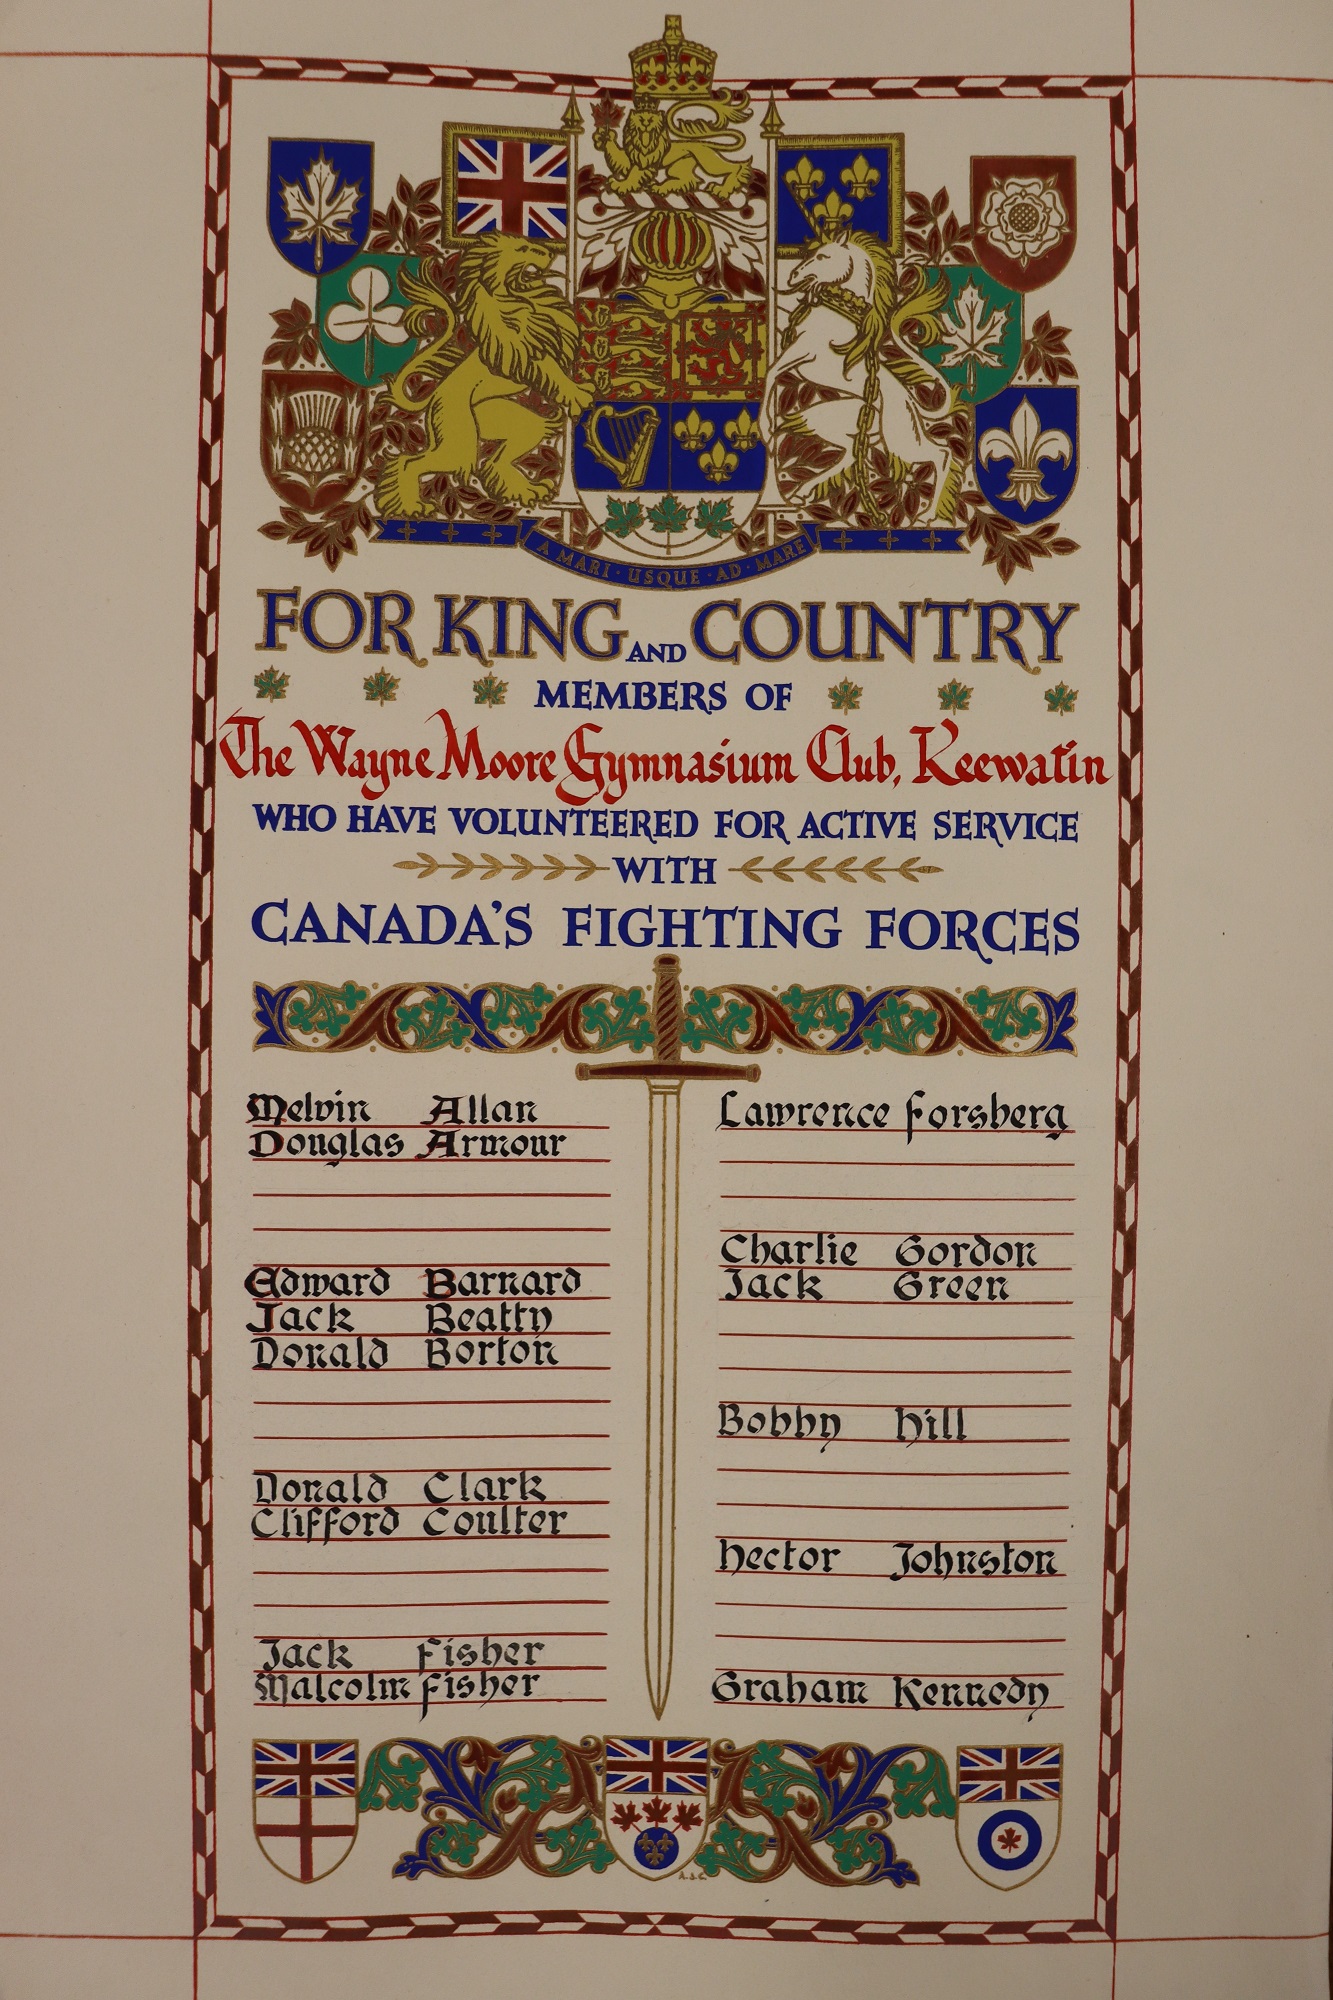 A MARI · USQUE · AD · MARE
FOR KING AND COUNTRY
MEMBERS OF
The Wayne Moore Gymnasium Club, Keewatin
WHO HAVE VOLUNTEERED FOR ACTIVE SERVICE
WITH
CANADA'S FIGHTING FORCES
Melvin Allan
Douglas Armour
Edward Barnard
Jack Beatty
Donald Borton
Donald Clark
Clifford Coulter
Jack Fisher
Malcolm Fisher
Lawrence Forsberg
Charlie Gordon
Jack Green
Bobby Hill
Hector Johnston
Graham Kennedy